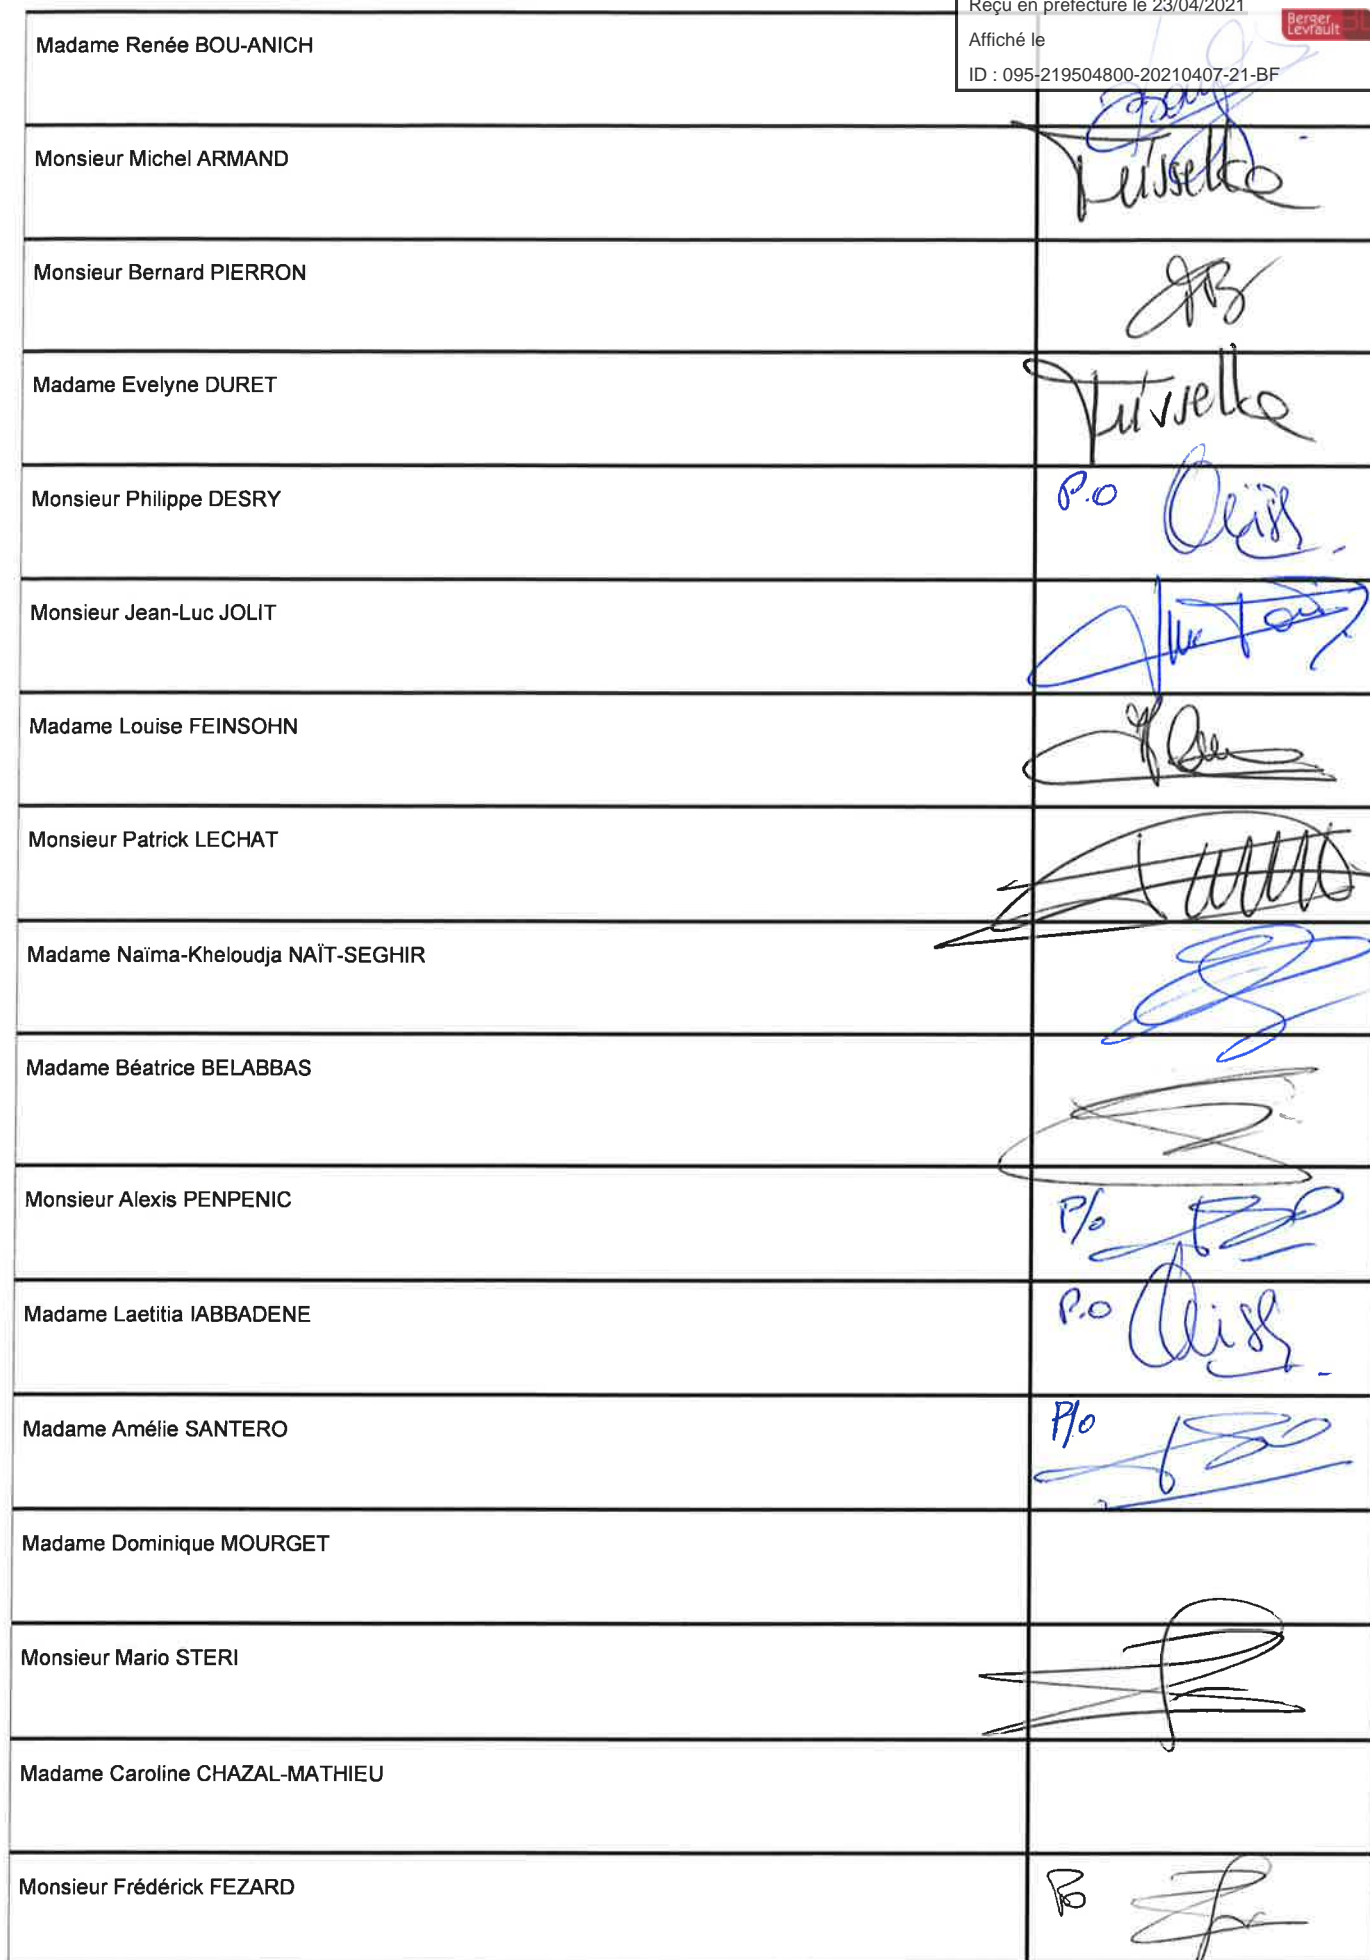 Reçu en préfecture le 23/04/2021
Berger
Levrault
Affiché le
ID : 095-219504800-20210407-21-BF
Madame Renée BOU-ANICH
Monsieur Michel ARMAND
Monsieur Bernard PIERRON
Madame Evelyne DURET
Monsieur Philippe DESRY
P.O
Monsieur Jean-Luc JOLIT
Madame Louise FEINSOHN
Monsieur Patrick LECHAT
Madame Naïma-Kheloudja NAÏT-SEGHIR
Madame Béatrice BELABBAS
Monsieur Alexis PENPENIC
P/o
Madame Laetitia IABBADENE
P.O
Madame Amélie SANTERO
P/o
Madame Dominique MOURGET
Monsieur Mario STERI
Madame Caroline CHAZAL-MATHIEU
Monsieur Frédérick FEZARD
Po